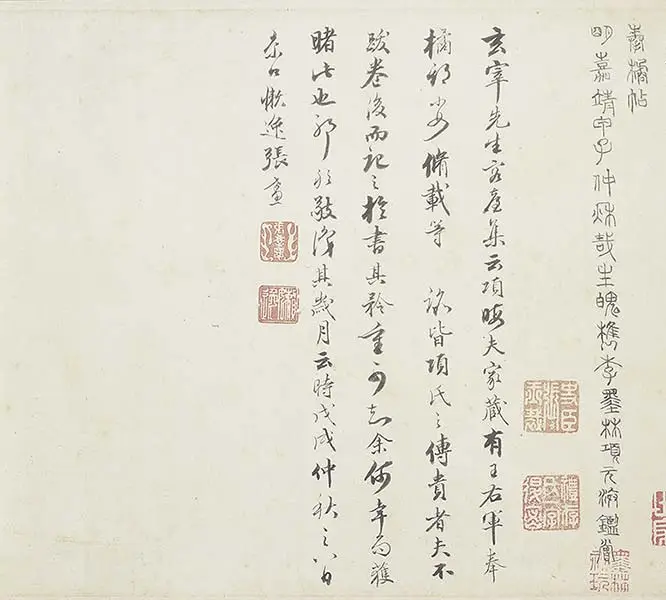 奉橘帖
明嘉靖甲子仲秌哉生魄檇李墨林項元汴鑑賞
玄宰先生容臺集云項晦夫家藏有王右軍奉
橘 脩載等 諸皆項氏之傳貴者夫不
跋卷後而記之於書其矜重可知余何幸而獲
睹此也耶 敬識其歲月云時戊戌仲秋之八日
京口嬾逸張
墨林祕玩